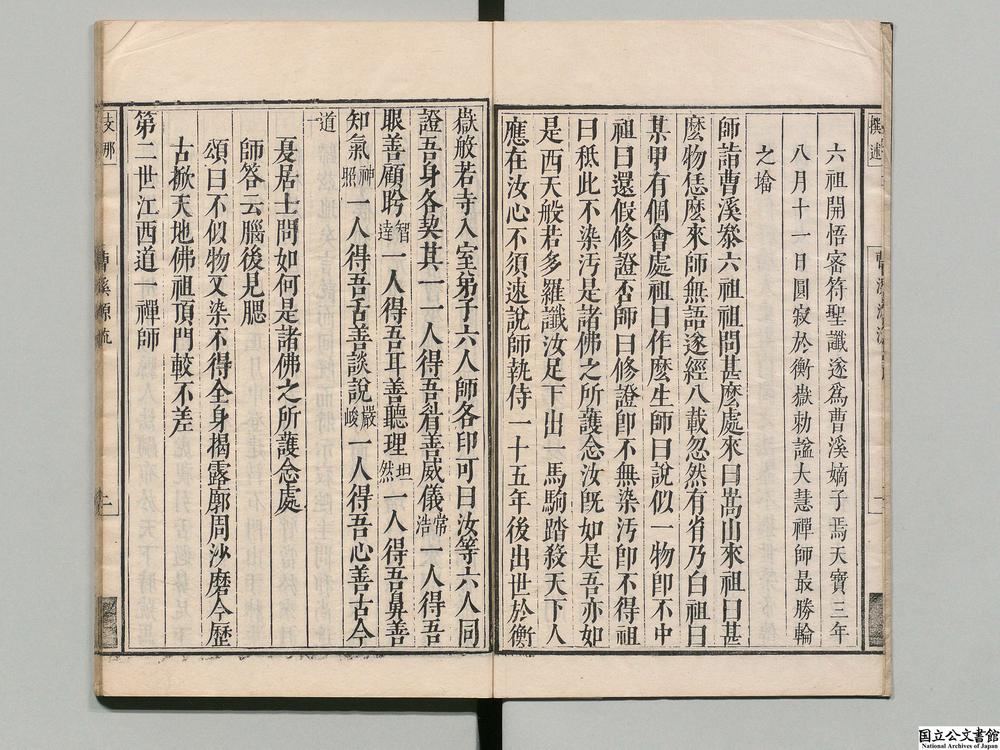 撰述
六祖開悟審符聖讖遂爲曹溪嫡子焉天寶三年
八月十一日圓寂於衡嶽勅諡大慧禪師最勝輪
之墖
師詣曹溪叅六祖祖問甚麽處來曰嵩山來祖曰甚
麽物恁麽來師無語遂經八載忽然有省乃白祖曰
某甲有個會處祖曰作麽生師曰說似一物卽不中
祖曰還假修證否師曰修證卽不無染汚卽不得祖
曰秖此不染汚是諸佛之所護念汝旣如是吾亦如
是西天般若多羅讖汝足下出一馬駒踏殺天下人
應在汝心不須速說師執侍一十五年後出世於衡
嶽般若寺入室弟子六人師各印可曰汝等六人同
證吾身各契其一一人得吾眉善威儀常浩一人得吾
眼善顧盻智達一人得吾耳善聽理坦然一人得吾鼻善
知氣神照一人得吾舌善談說嚴峻一人得吾心善古今
道一
憂居士問如何是諸佛之所護念處
師答云腦後見腮
頌曰不似物又染不得全身揭露廓周沙磨今歷
古掀天地佛祖頂門較不差
第二世江西道一禪師
支那
曹溪源流
國立公文書館
National Archives of Japan